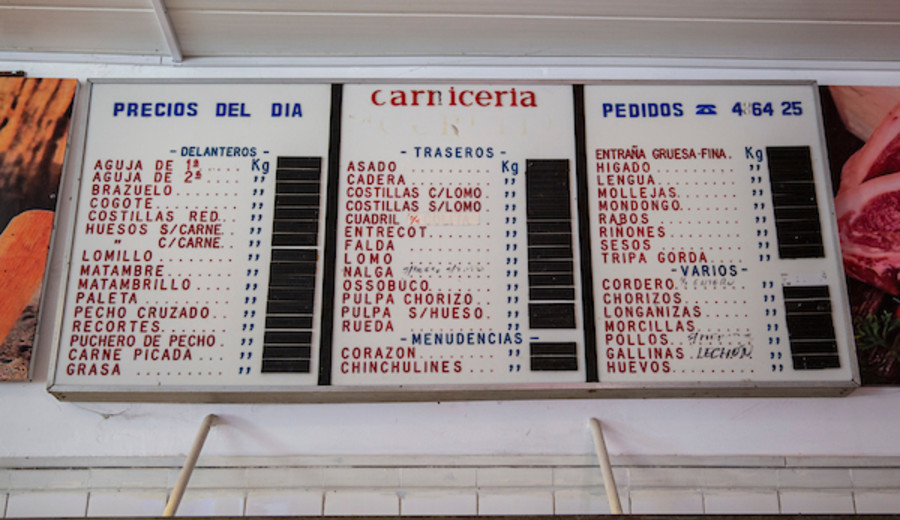 PRECIOS DEL DIA
- DELANTEROS -
AGUJA DE 1ª Kg
AGUJA DE 2ª "
BRAZUELO "
COGOTE "
COSTILLAS RED. "
HUESOS S/CARNE "
" C/CARNE "
LOMILLO "
MATAMBRE "
MATAMBRILLO "
PALETA "
PECHO CRUZADO "
RECORTES "
PUCHERO DE PECHO "
CARNE PICADA "
GRASA "
carniceria
- TRASEROS -
ASADO Kg
CADERA "
COSTILLAS C/LOMO "
COSTILLAS S/LOMO "
CUADRIL "
ENTRECOT "
FALDA "
LOMO "
NALGA "
OSSOBUCO "
PULPA CHORIZO "
PULPA S/HUESO "
RUEDA "
- MENUDENCIAS -
CORAZON "
CHINCHULINES "
PEDIDOS ☎ 4 64 25
ENTRAÑA GRUESA-FINA. Kg
HIGADO "
LENGUA "
MOLLEJAS "
MONDONGO "
RABOS "
RINONES "
SESOS "
TRIPA GORDA "
- VARIOS -
CORDERO "
CHORIZOS "
LONGANIZAS "
MORCILLAS "
POLLOS "
GALLINAS LECHON "
HUEVOS "